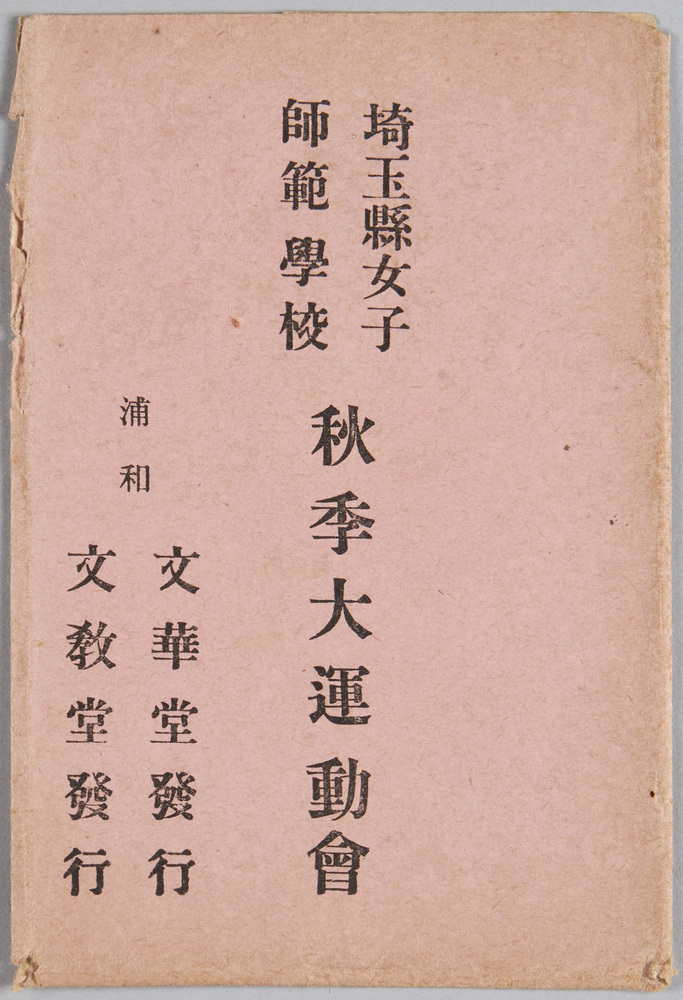 埼玉縣女子
師範學校
秋季大運動會
浦和
文華堂發行
文敎堂發行